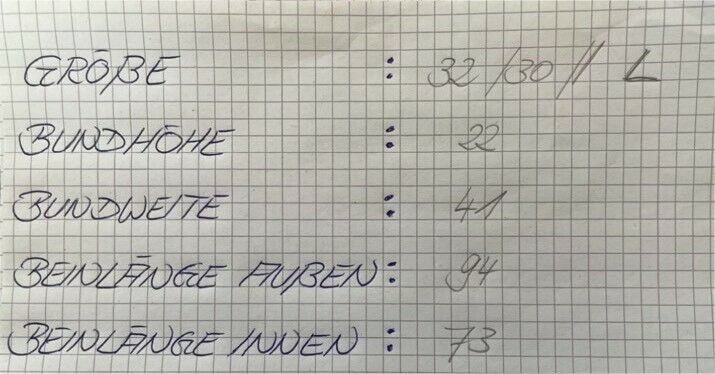 GRÖßE : 32/30 // L
BUNDHÖHE : 22
BUNDWEITE : 41
BEINLÄNGE AUßEN : 94
BEINLÄNGE INNEN : 73